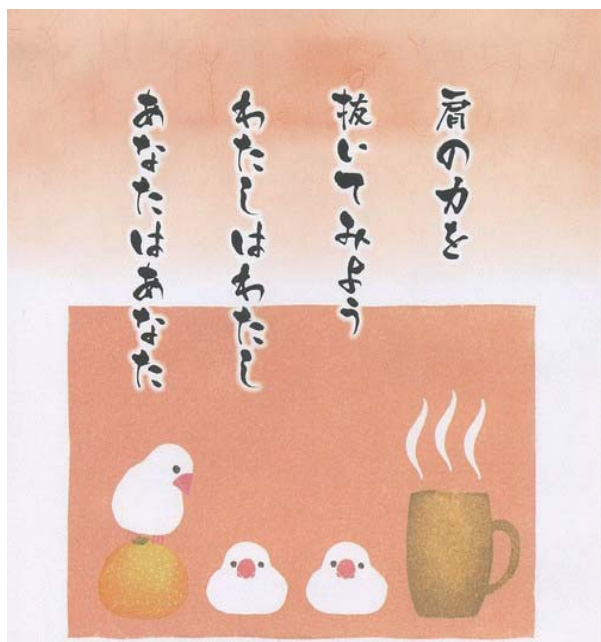 肩の力を
抜いてみよう
わたしはわたし
あなたはあなた